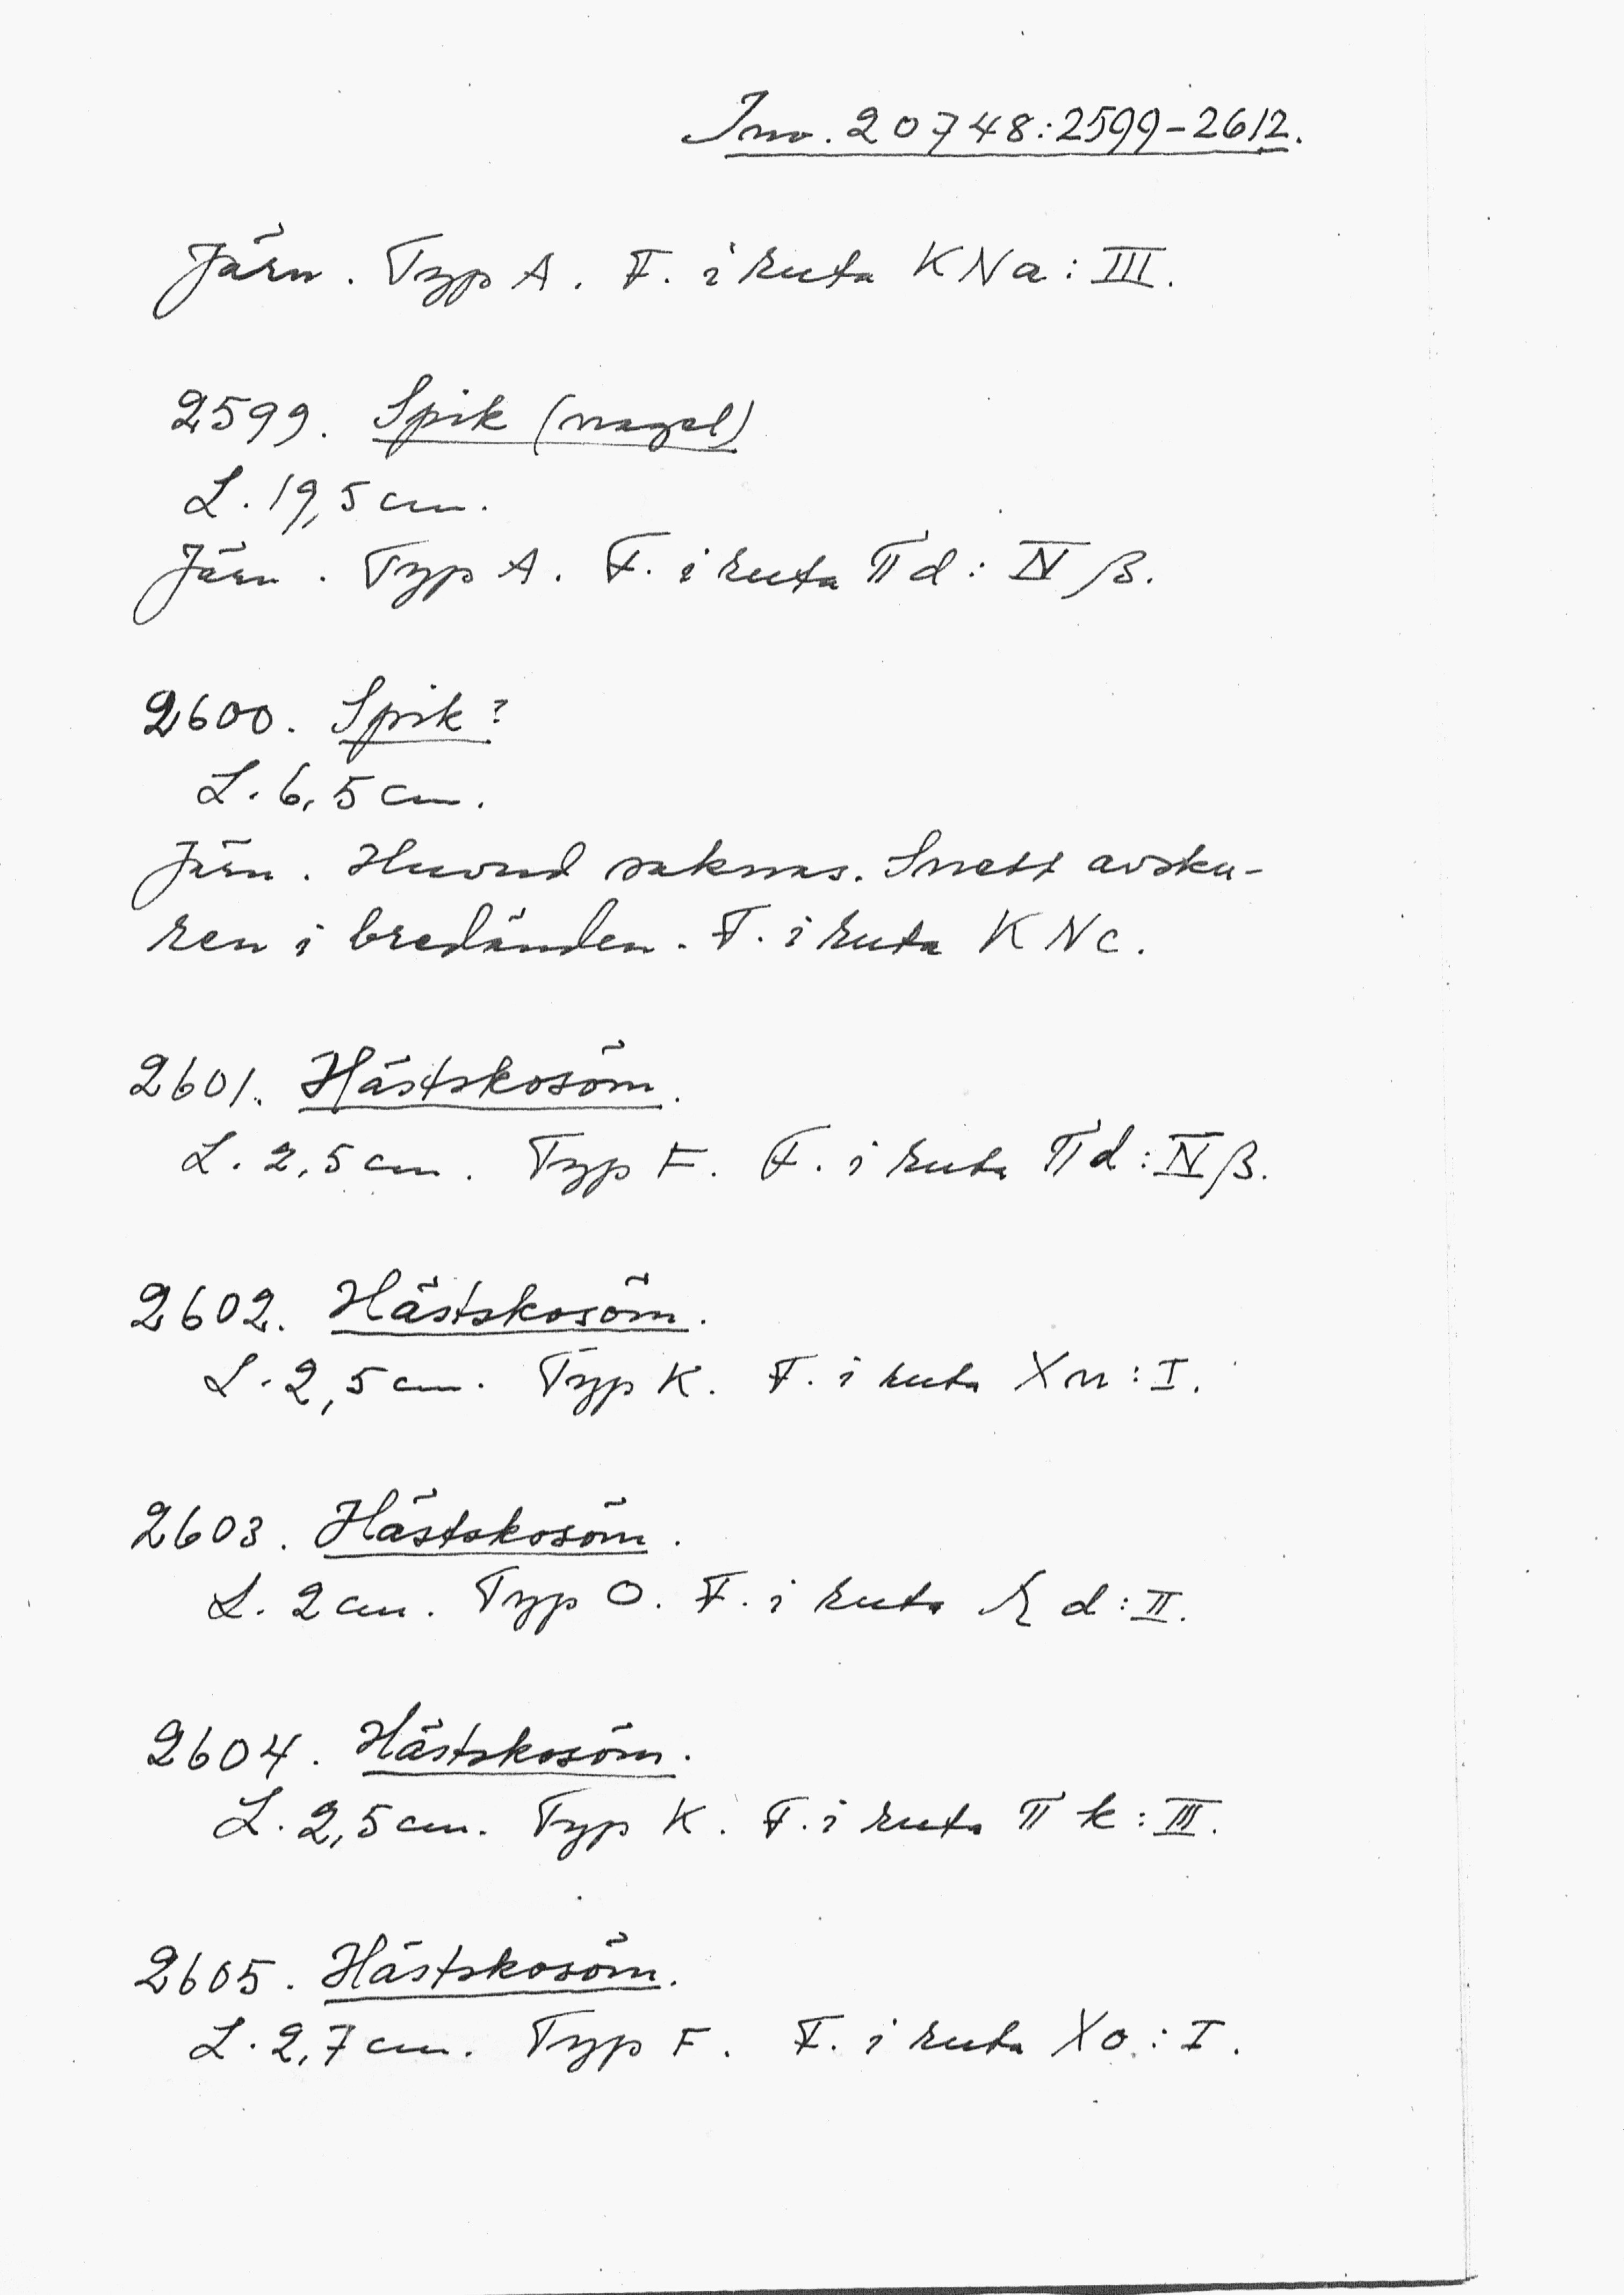 Inv. 20748:2599-2612.
Järn. Typ A. F. i ruta KNa: III.
2599. Spik (nagel)
L. 19,5 cm.
Järn. Typ A. F. i ruta Πd: IV β.
2600. Spik?
L. 6,5 cm.
Järn. Huvud saknas. Snett avsku-
ren i bredänden. F. i ruta KNc.
2601. Hästskosöm.
L. 2,5 cm. Typ F. F. i ruta Πd: IV β.
2602. Hästskosöm.
L. 2,5 cm. Typ K. F. i ruta Xn: I.
2603. Hästskosöm.
L. 2 cm. Typ O. F. i ruta d: II.
2604. Hästskosöm.
L. 2,5 cm. Typ K. F. i ruta Π k: III.
2605. Hästskosöm.
L. 2,7 cm. Typ F. F. i ruta Xo: I.